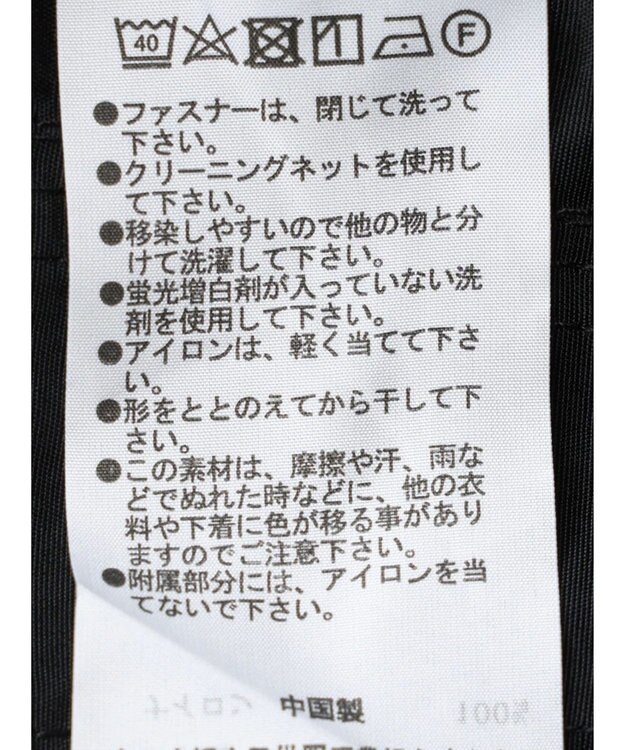 40
F
●ファスナーは、閉じて洗って
下さい。
●クリーニングネットを使用し
て下さい。
●移染しやすいので他の物と分
けて洗濯して下さい。
●蛍光増白剤が入っていない洗
剤を使用して下さい。
●アイロンは、軽く当てて下さ
い。
●形をととのえてから干して下
さい。
●この素材は、摩擦や汗、雨な
どでぬれた時などに、他の衣
料や下着に色が移る事があり
ますのでご注意下さい。
●附属部分には、アイロンを当
てないで下さい。
中国製
100%